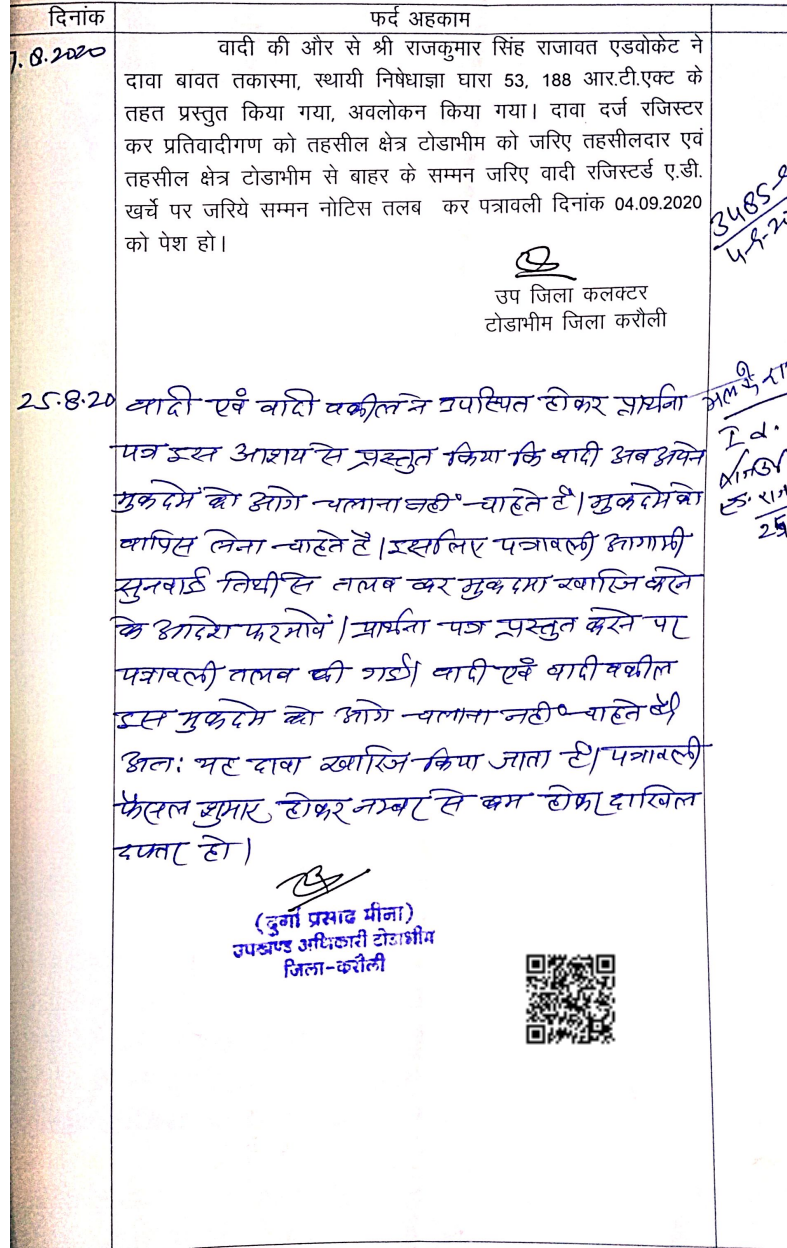 दिनांक
फर्द अहकाम
7.8.2020
वादी की और से श्री राजकुमार सिंह राजावत एडवोकेट ने
दावा बावत तकास्मा, स्थायी निषेधाज्ञा घारा 53, 188 आर.टी.एक्ट के
तहत प्रस्तुत किया गया, अवलोकन किया गया। दावा दर्ज रजिस्टर
कर प्रतिवादीगण को तहसील क्षेत्र टोडाभीम को जरिए तहसीलदार एवं
तहसील क्षेत्र टोडाभीम से बाहर के सम्मन जरिए वादी रजिस्टर्ड ए.डी.
खर्चे पर जरिये सम्मन नोटिस तलब कर पत्रावली दिनांक 04.09.2020
को पेश हो।
3485
उप जिला कलक्टर
टोडाभीम जिला करौली
25.8.20
वादी एवं वादी वकील ने उपस्थित होकर प्रार्थना
पत्र इस आशय से प्रस्तुत किया कि वादी अब अपने
मुकदमें को आगे चलाना नहीं चाहते है। मुकदमे को
वापिस लेना चाहते है। इसलिए पत्रावली आगामी
सुनवाई तिथी से तलब कर मुकदमा खारिज करने
के आदेश फरमावें। प्रार्थना पत्र प्रस्तुत करने पर
पत्रावली तलब की गई। वादी एवं वादी वकील
इस मुकदमे को आगे चलाना नहीं चाहते है।
अतः यह दावा खारिज किया जाता है। पत्रावली
फैसल शुमार होकर नम्बर से कम होकर दाखिल
दफ्तर हो।
(दुर्गा प्रसाद मीना)
उपखण्ड अधिकारी टोडाभीम
जिला-करौली